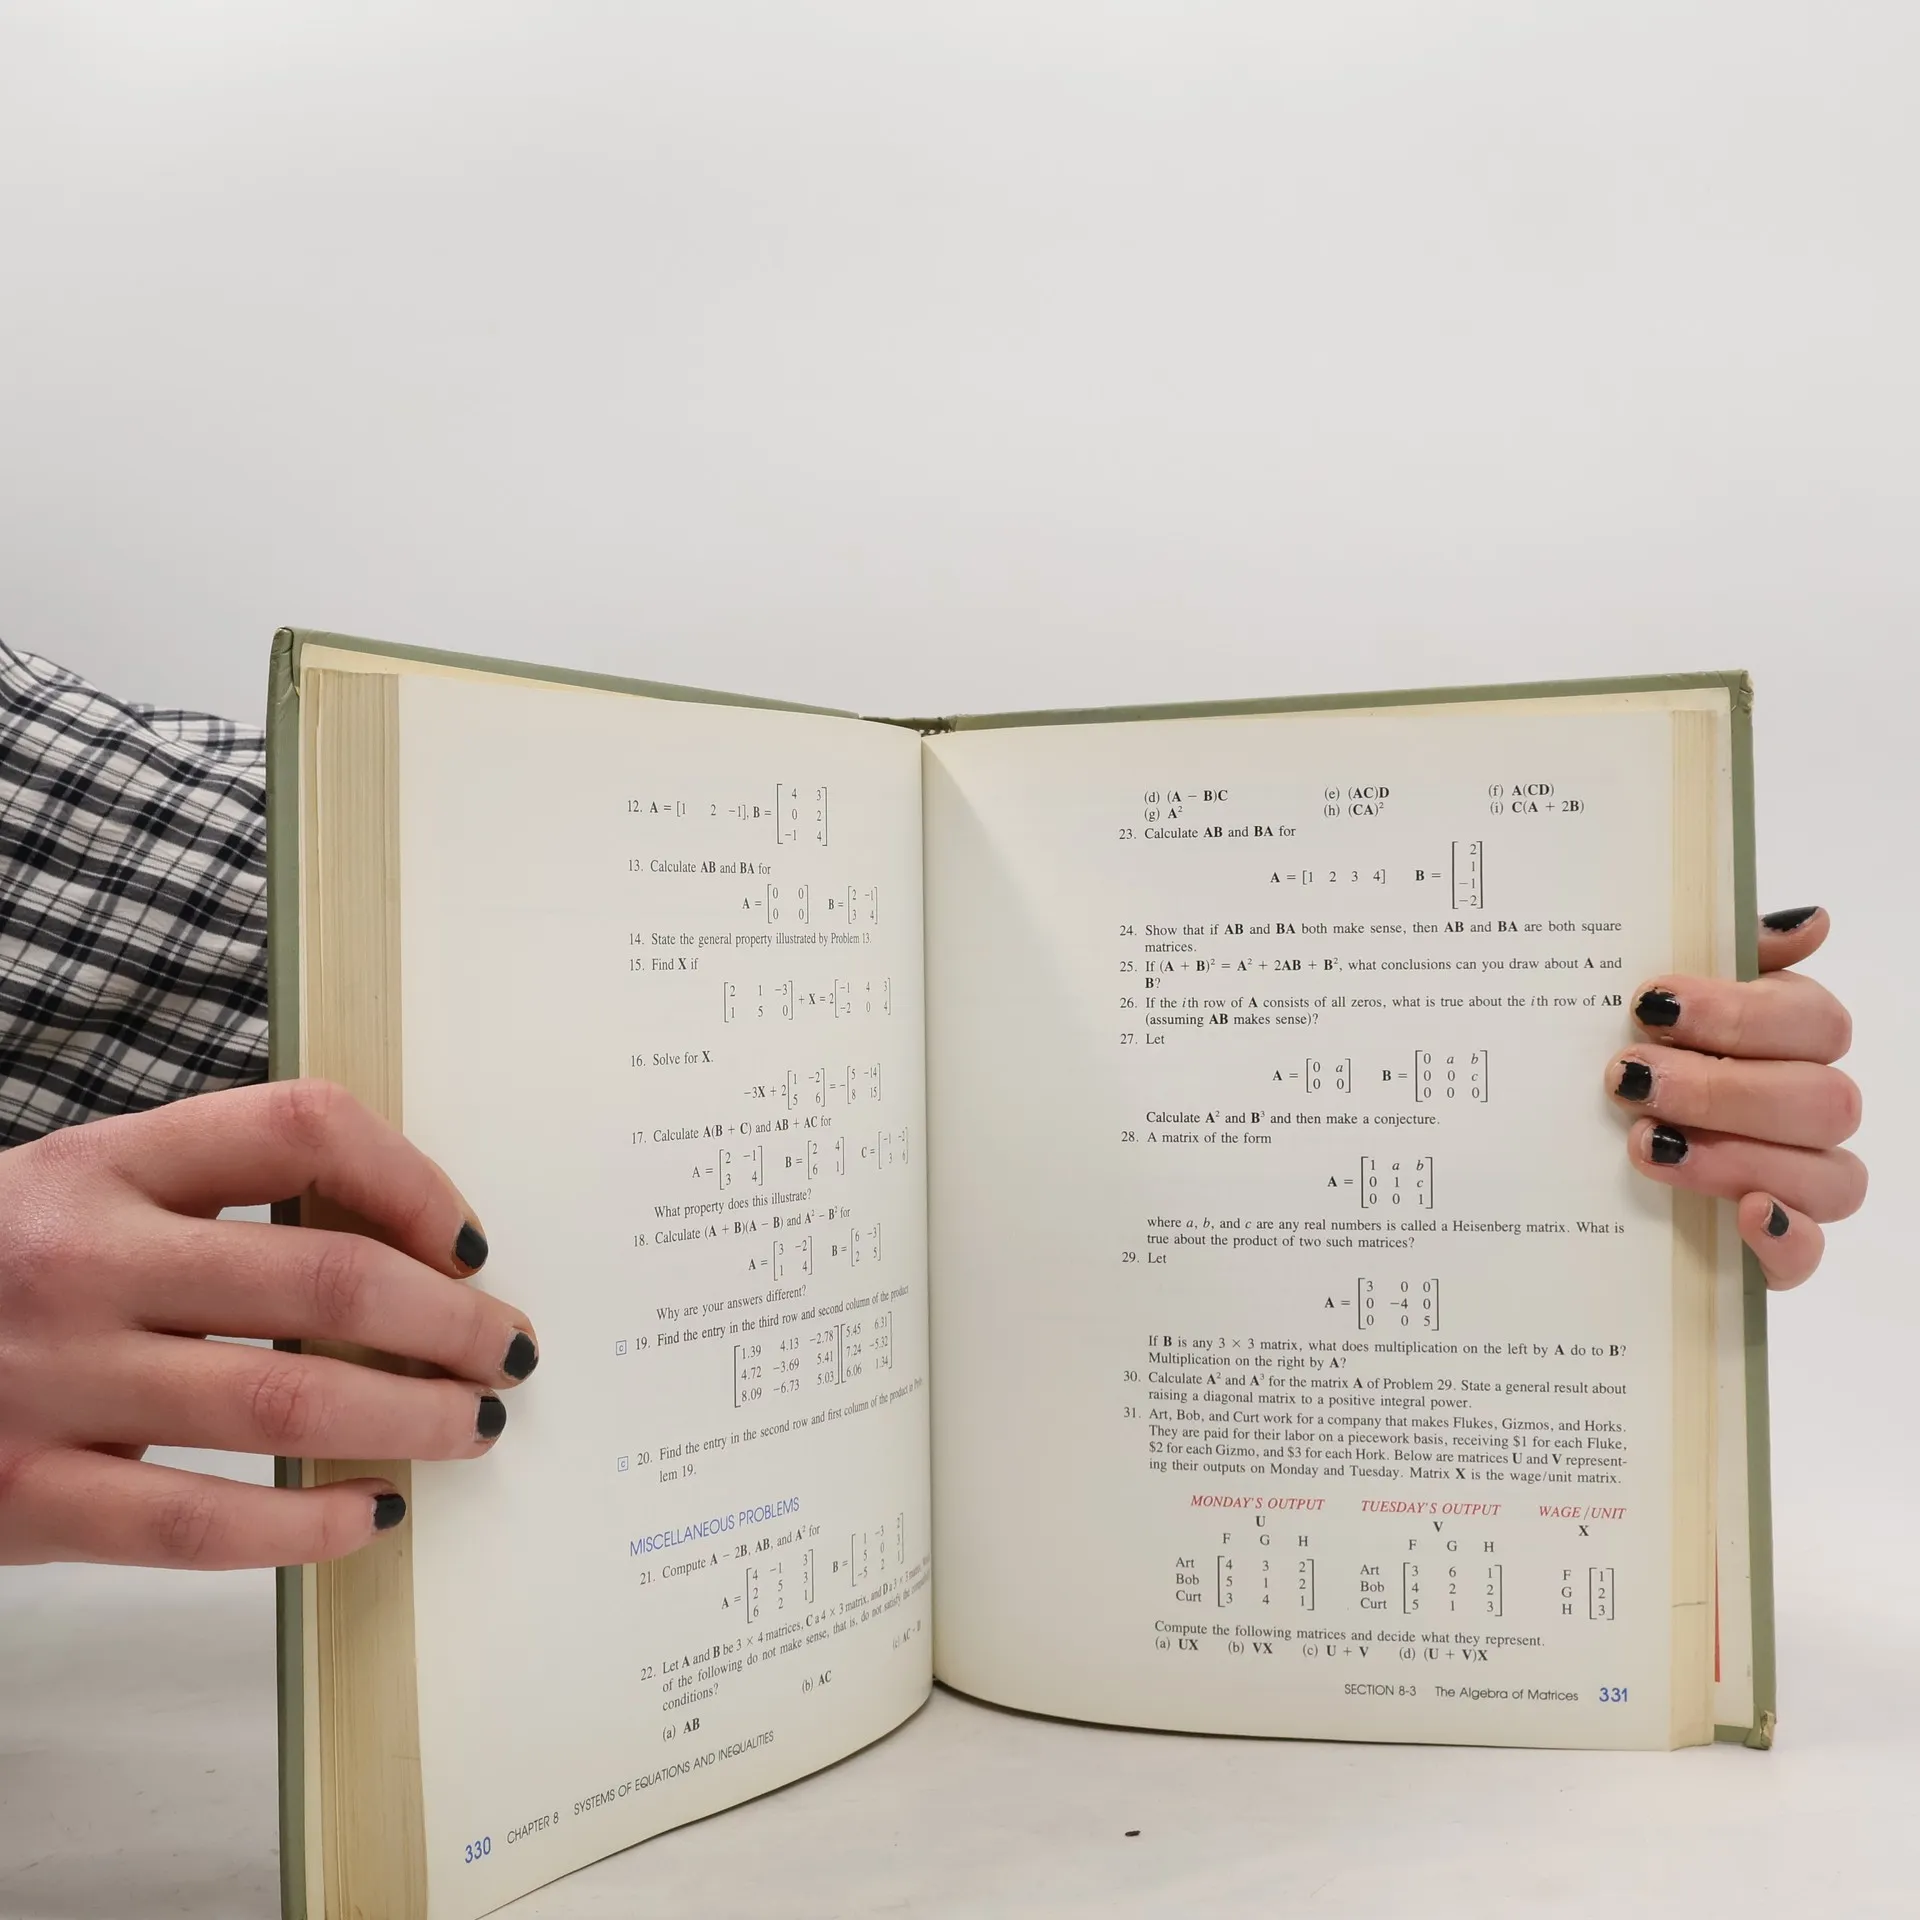 12. A = [1 2 −1], B = [4 3
0 2
−1 4]
13. Calculate AB and BA for
A = [0 0
0 0] B = [2 −1
3 4]
14. State the general property illustrated by Problem 13.
15. Find X if
[2 1 −3
1 5 0] + X = 2[−1 4 3
−2 0 4]
16. Solve for X.
−3X + 2[1 −2
5 6] = −[5 −14
8 15]
17. Calculate A(B + C) and AB + AC for
A = [2 −1
3 4] B = [2 4
6 1] C = [−1 −2
3 6]
What property does this illustrate?
18. Calculate (A + B)(A − B) and A² − B² for
A = [3 −2
1 4] B = [6 −3
2 5]
Why are your answers different?
C 19. Find the entry in the third row and second column of the product
[1.39 4.13 −2.78
4.72 −3.69 5.41
8.09 −6.73 5.03] [5.45 6.31
7.24 −5.32
6.06 1.34]
C 20. Find the entry in the second row and first column of the product in
lem 19.
MISCELLANEOUS PROBLEMS
21. Compute A − 2B, AB, and A² for
A = [4 −1 3
2 5 3
6 2 1] B = [1 −3 2
5 0 3
−5 2 1]
22. Let A and B be 3 × 4 matrices, C a 4 × 3 matrix, and D a 3 × 3 matrix.
of the following do not make sense, that is, do not satisfy the
conditions?
(a) AB (b) AC (c) AC − D
330 CHAPTER 8 SYSTEMS OF EQUATIONS AND INEQUALITIES
(d) (A − B)C (e) (AC)D (f) A(CD)
(g) A² (h) (CA)² (i) C(A + 2B)
23. Calculate AB and BA for
A = [1 2 3 4] B = [2
1
−1
−2]
24. Show that if AB and BA both make sense, then AB and BA are both square
matrices.
25. If (A + B)² = A² + 2AB + B², what conclusions can you draw about A and
B?
26. If the ith row of A consists of all zeros, what is true about the ith row of AB
(assuming AB makes sense)?
27. Let
A = [0 a
0 0] B = [0 a b
0 0 c
0 0 0]
Calculate A² and B³ and then make a conjecture.
28. A matrix of the form
A = [1 a b
0 1 c
0 0 1]
where a, b, and c are any real numbers is called a Heisenberg matrix. What is
true about the product of two such matrices?
29. Let
A = [3 0 0
0 −4 0
0 0 5]
If B is any 3 × 3 matrix, what does multiplication on the left by A do to B?
Multiplication on the right by A?
30. Calculate A² and A³ for the matrix A of Problem 29. State a general result about
raising a diagonal matrix to a positive integral power.
31. Art, Bob, and Curt work for a company that makes Flukes, Gizmos, and Horks.
They are paid for their labor on a piecework basis, receiving $1 for each Fluke,
$2 for each Gizmo, and $3 for each Hork. Below are matrices U and V represent-
ing their outputs on Monday and Tuesday. Matrix X is the wage/unit matrix.
MONDAY'S OUTPUT TUESDAY'S OUTPUT WAGE/UNIT
U V X
F G H F G H
Art [4 3 2 Art [3 6 1 F [1
Bob 5 1 2 Bob 4 2 2 G 2
Curt 3 4 1] Curt 5 1 3] H 3]
Compute the following matrices and decide what they represent.
(a) UX (b) VX (c) U + V (d) (U + V)X
SECTION 8-3 The Algebra of Matrices 331